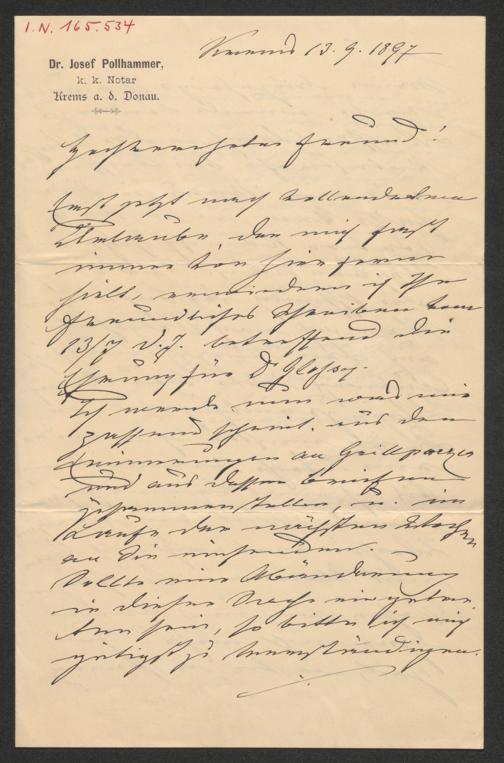 I.N. 165.534
Krems 13. 9. 1897
Dr. Josef Pollhammer,
k. k. Notar
Krems a. d. Donau.
Hochverehrter Freund!
Erst jetzt nach vollendetem
Urlaube der mich fast
immer von hier ferne
hielt, erwiedere ich Ihr
freundliches Schreiben vom
13/7 d. J. betreffend die
Ehrung für Dr Glossy.
Ich werde nun was mir
passend scheint, aus den
Erinnerungen an Grillparzer
und aus dessen Briefen
zusammenstellen, u. im
Laufe der nächsten Wochen
an Sie einsenden.
Sollte eine Abänderung
in dieser Sache eingetre-
ten sein, so bitte ich mich
gütigst zu verständigen.